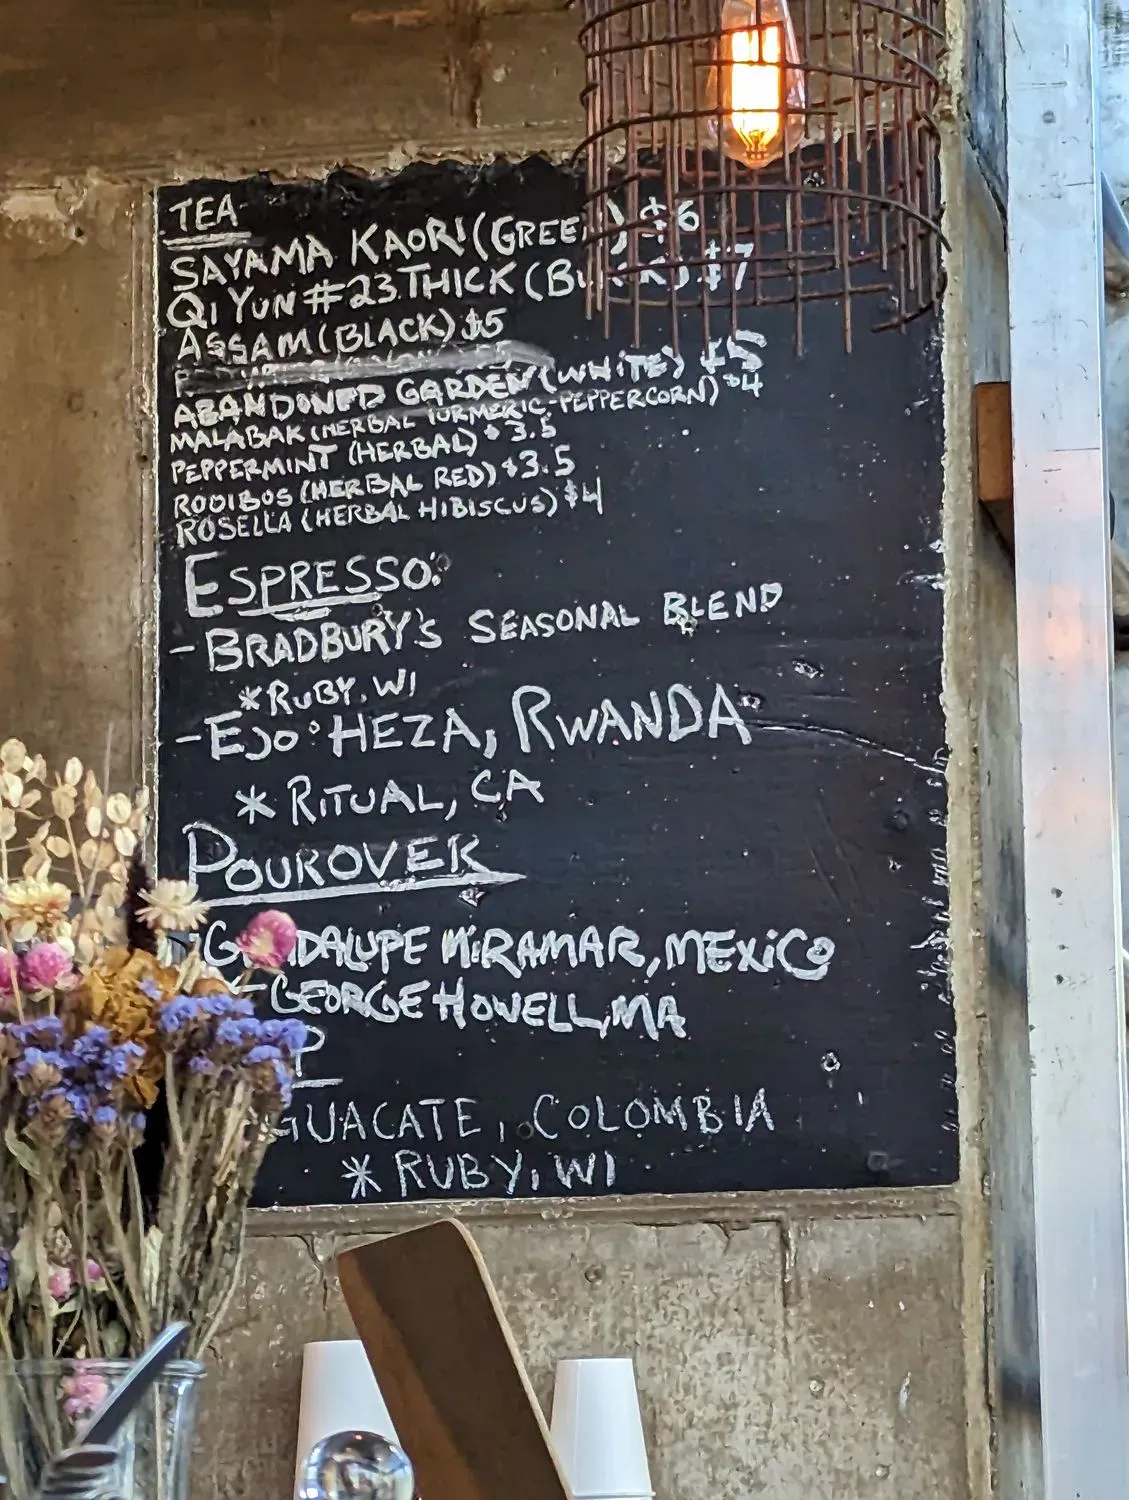 TEA
SAYAMA KAORI (GREEN) $6
QI YUN #23 THICK $7
ASSAM (BLACK) $5
ABANDONED GARDEN (WHITE) $5
MALABAR (HERBAL TURMERIC-PEPPERCORN) $4
PEPPERMINT (HERBAL) $3.5
ROOIBOS (HERBAL RED) $3.5
ROSELLA (HERBAL HIBISCUS) $4
ESPRESSO:
- BRADBURY'S SEASONAL BLEND
*RUBY, WI
- EJO HEZA, RWANDA
* RITUAL, CA
POUROVER
MIRAMAR, MEXICO
- GEORGE HOWELL, MA
COLOMBIA
* RUBY, WI